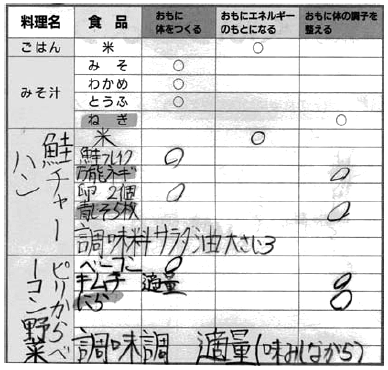 料理名 食品 おもに体をつくる おもにエネルギーのもとになる おもに体の調子を整える
ごはん 米 ○
みそ汁 みそ ○
わかめ ○
とうふ ○
ねぎ ○
鮭チャーハン 米 ○
鮭フレイク ○
万能ネギ ○
卵 2個 ○
青じそ5枚 ○
調味料サラダ油大さじ3
ピリからベーコン野菜 ベーコン ○
キムチ 適量 ○
にら ○
調味調 適量(味みしながら)